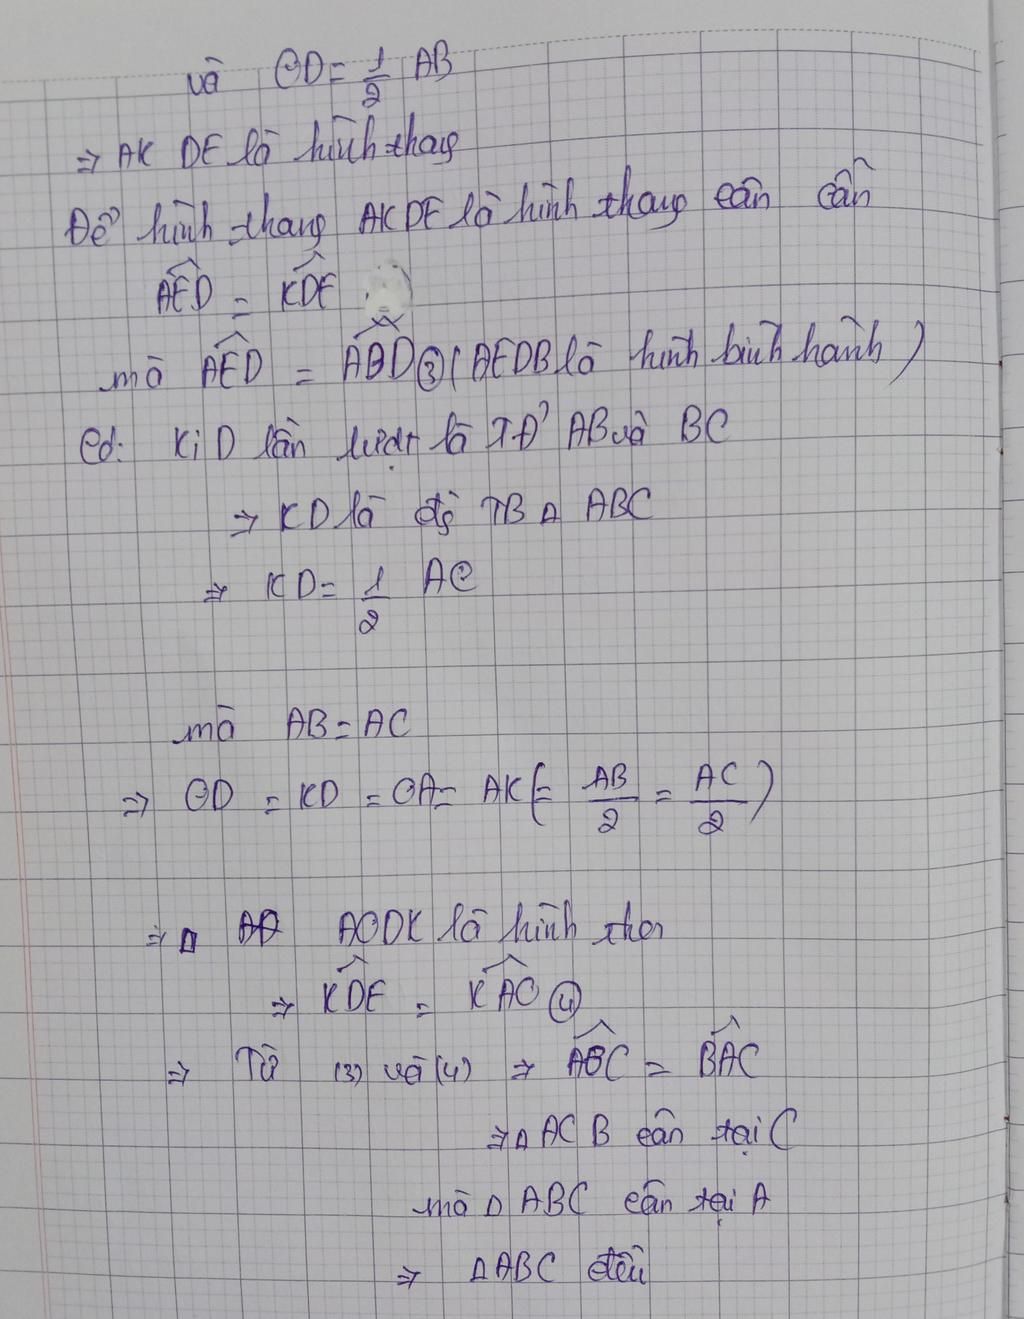 và OD = 1/2 AB
⇒ AK DE là hình thang
Để hình thang AKDE là hình thang cân cần
AÊD = KD̂E
mà AÊD = AB̂D (3) (AEDB là hình bình hành)
Có: K; D lần lượt là TĐ' AB và BC
⇒ KD là đg TB Δ ABC
⇒ KD = 1/2 AC
mà AB = AC
⇒ OD = KD = OA = AK (= AB/2 = AC/2)
⇒ AODK là hình thoi
⇒ KD̂E = KÂO (4)
⇒ Từ (3) và (4) ⇒ AB̂C = BÂC
⇒ Δ ACB cân tại C
mà Δ ABC cân tại A
⇒ ΔABC đều